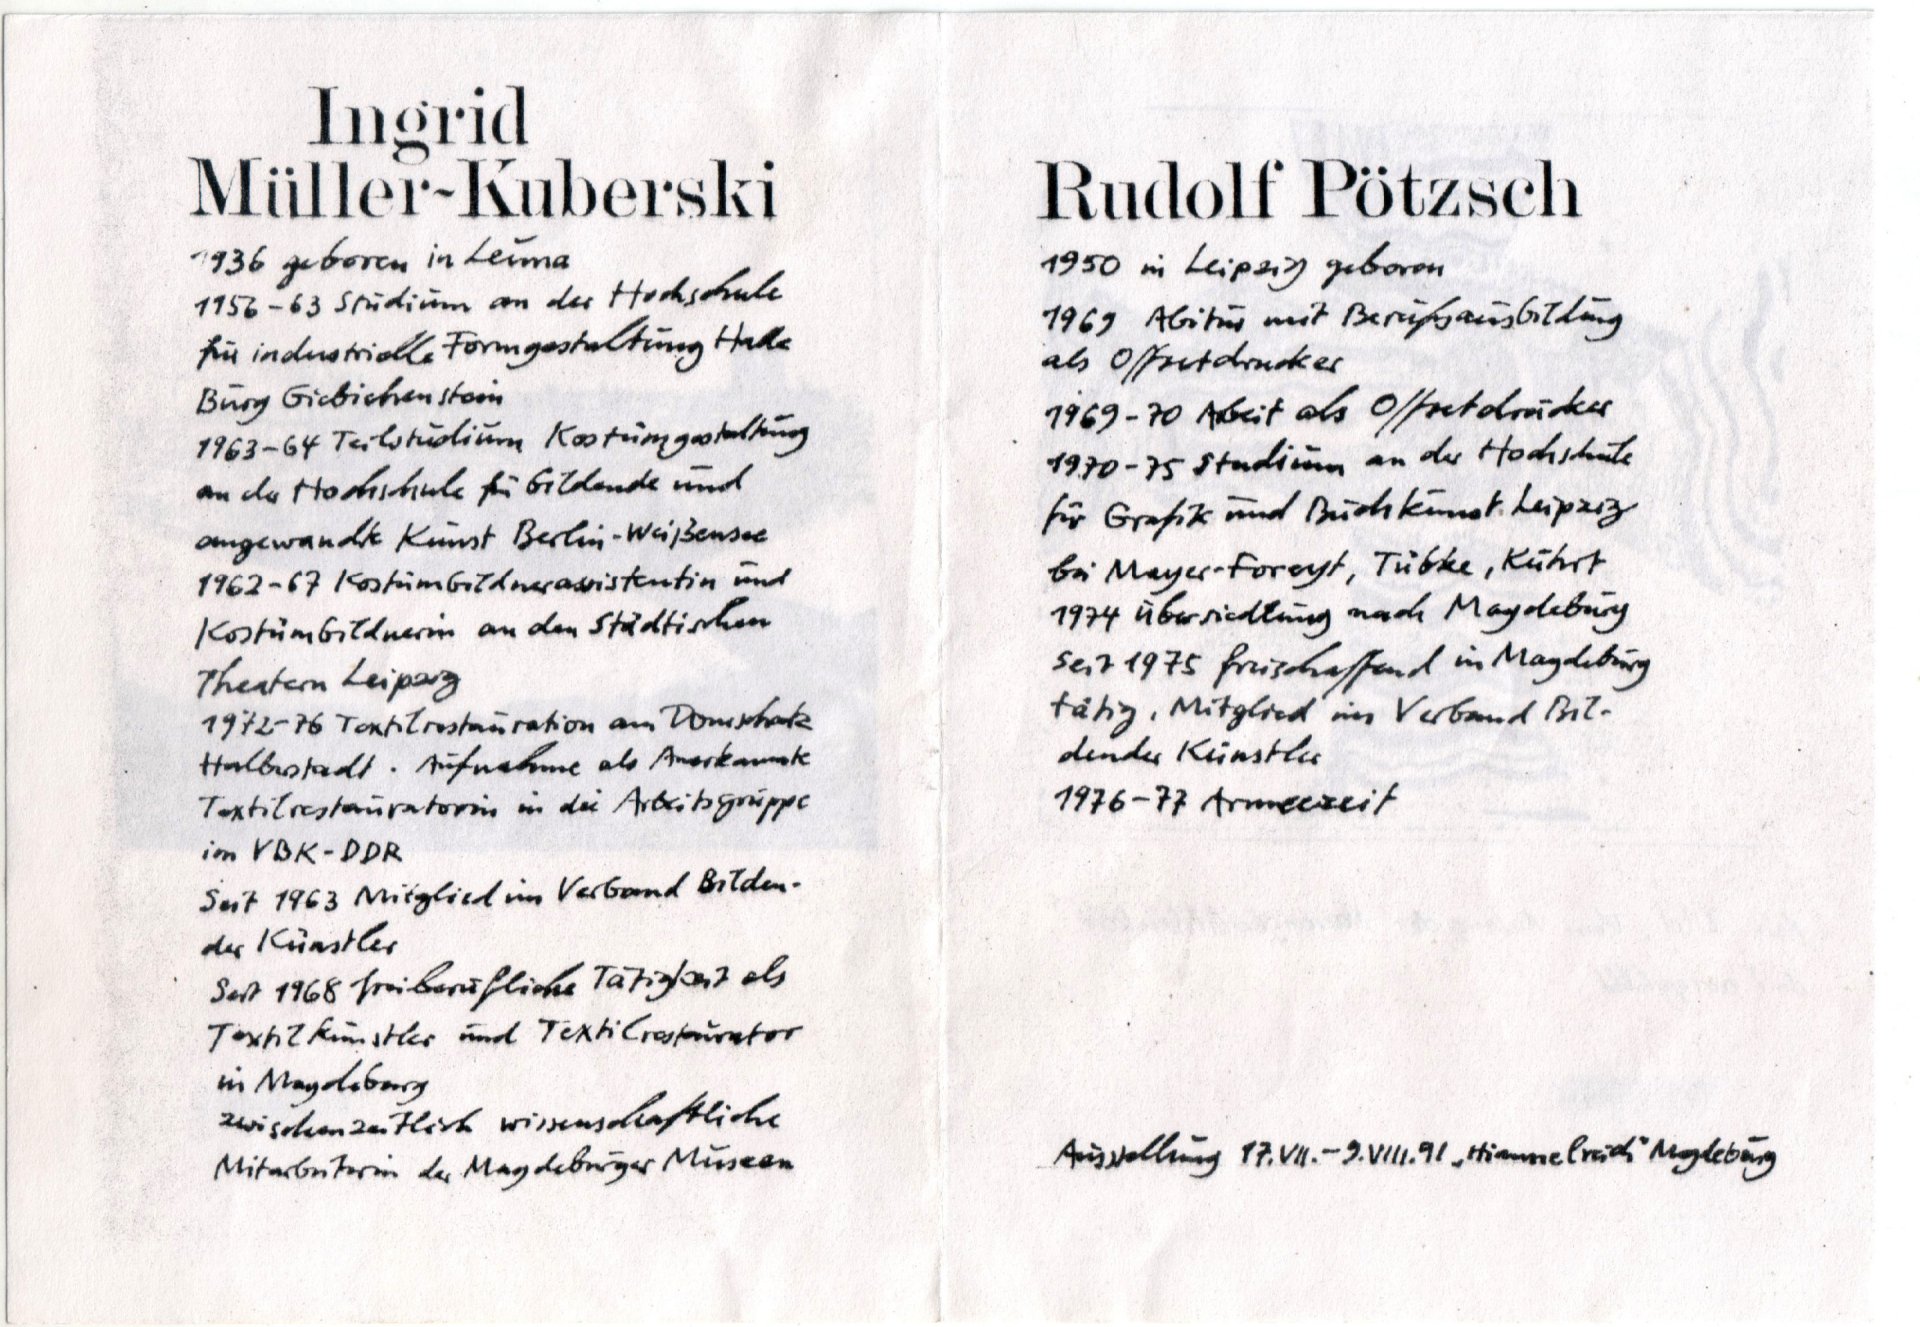 Ingrid
Müller-Kuberski
1936 geboren in Leuna
1956-63 Studium an der Hochschule
für industrielle Formgestaltung Halle
Burg Giebichenstein
1963-64 Teilstudium Kostümgestaltung
an der Hochschule für bildende und
angewandte Kunst Berlin-Weißensee
1962-67 Kostümbildnerassistentin und
Kostümbildnerin an den Städtischen
Theatern Leipzig
1972-76 Textilrestauration am Domschatz
Halberstadt. Aufnahme als Anerkannte
Textilrestauratorin in die Arbeitsgruppe
im VBK-DDR
Seit 1963 Mitglied im Verband Bilden-
der Künstler
Seit 1968 freiberufliche Tätigkeit als
Textilkünstler und Textilrestaurator
in Magdeburg
zwischenzeitlich wissenschaftliche
Mitarbeiterin der Magdeburger Museen
Rudolf Pötzsch
1950 in Leipzig geboren
1969 Abitur mit Berufsausbildung
als Offsetdrucker
1969-70 Arbeit als Offsetdrucker
1970-75 Studium an der Hochschule
für Grafik und Buchkunst Leipzig
bei Mayer-Foreyt, Tübke, Kuhrt
1974 Übersiedlung nach Magdeburg
seit 1975 freischaffend in Magdeburg
tätig, Mitglied im Verband Bil-
dender Künstler
1976-77 Armeezeit
Ausstellung 17.VII.-9.VIII.91 „Himmelreich" Magdeburg